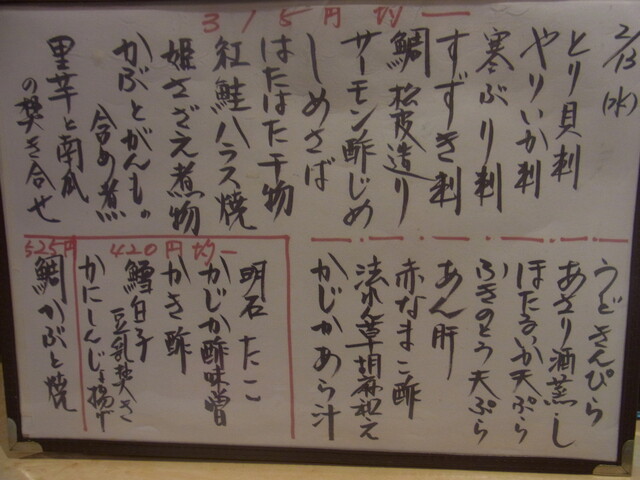 2/13(水)
315円均一
とり貝刺
やりいか刺
寒ぶり刺
すずき刺
鯛松皮造り
サーモン酢じめ
しめさば
はたはた干物
紅鮭ハラス焼
姫さざえ煮物
かぶとがんも
含め煮
里芋と南瓜
の焚き合せ
うどきんぴら
あさり酒蒸し
ほたるいか天ぷら
ふきのとう天ぷら
あん肝
赤なまこ酢
法れん草胡麻和え
かじかあら汁
420円均一
明石たこ
かじか酢味噌
かき酢
鱈白子
豆乳焚き
かにしんじょ揚げ
525円
鯛かぶと焼